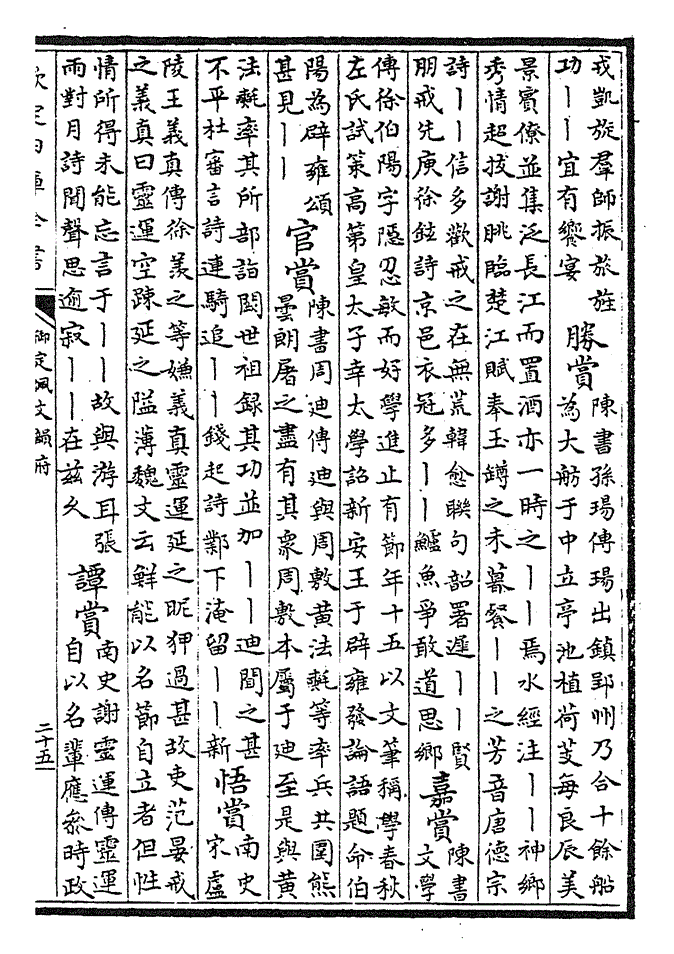 戎凱旋羣師振旅旌
功丨丨宜有饗宴
勝賞
陳書孫瑒傳瑒出鎮郢州乃合十餘船
為大舫于中立亭池植荷芰每良辰美
景賓僚並集泛長江而置酒亦一時之丨丨焉水經注丨丨神鄉
秀情超拔謝朓臨楚江賦奉玉罇之未暮餐丨丨之芳音唐德宗
詩丨丨信多歡戒之在無荒韓愈聯句韶署遲丨丨賢
朋戒先庚徐鉉詩京邑衣冠多丨丨鱸魚爭敢道思鄉
嘉賞
陳書
文學
傳徐伯陽字隱忍敏而好學進止有節年十五以文筆稱學春秋
左氏試策高第皇太子幸太學詔新安王于辟雍發論語題命伯
陽為辟雍頌
甚見丨丨
官賞
陳書周迪傳迪與周敷黃法𣰰等率兵共圍熊
曇朗屠之盡有其衆周敷本屬于迪至是與黃
法𣰰率其所部詣闕世祖録其功並加丨丨迪聞之甚
不平杜審言詩連騎追丨丨錢起詩鄴下淹留丨丨新
悟賞
南史
宋廬
陵王義真傳徐羨之等嫌義真靈運延之昵狎過甚故吏范晏戒
之義真曰靈運空疎延之隘薄魏文云鮮能以名節自立者但性
情所得未能忘言于丨丨故與游耳張
雨對月詩聞聲思逾寂丨丨在兹久
譚賞
南史謝靈運傳靈運
自以名輩應叅時政
欽定四庫全書
御定佩文韻府
二十五